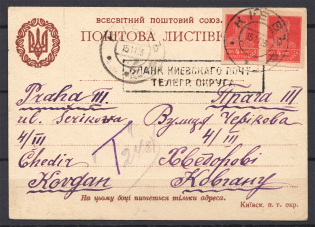 ВСЕСВІТНИЙ ПОШТОВИЙ СОЮЗ.
ПОШТОВА ЛИСТІВКА
БЛАНК КИЕВСКАГО ПОЧТ.
ТЕЛЕГР. ОКРУГА
Praha III.
Прага III.
ul. Šeříkova
Вулиця Черікова
4/III
4/III
T
Chedir
Хведорові
Kovgan
Ковгану
На цьому боці пишеться тільки адреса.
Київск. п. т. окр.